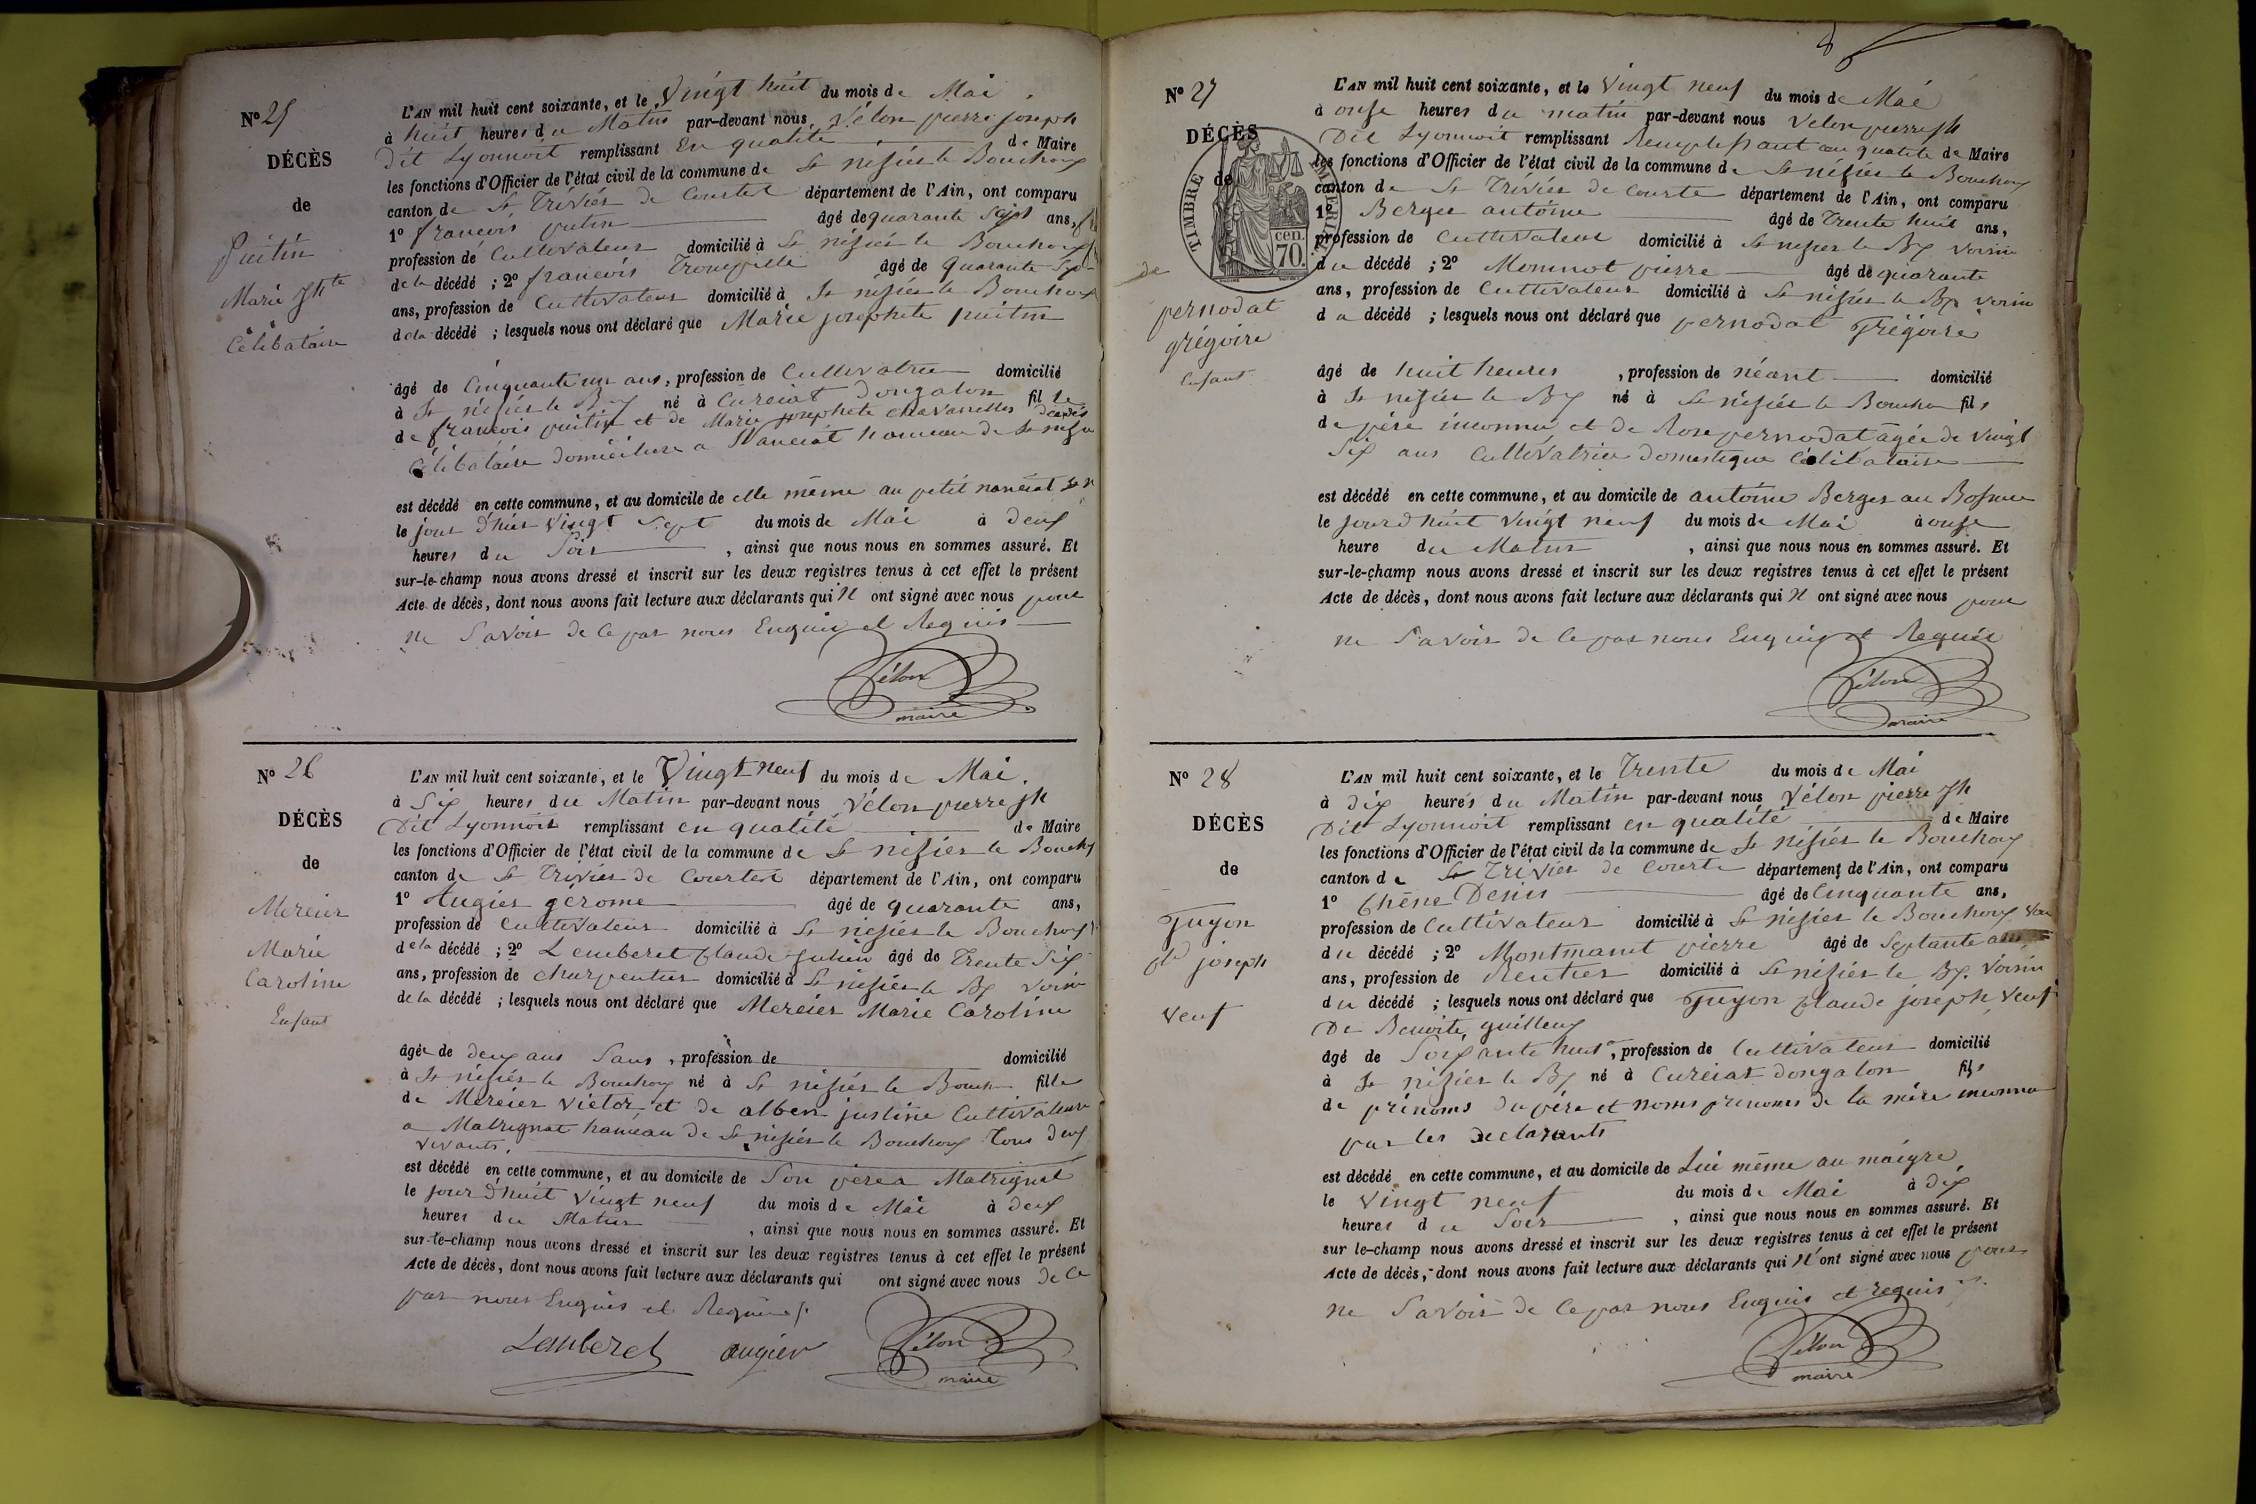 N° 25
DÉCÈS
de
Puitin
Marie Jhte
Célibataire
L'AN mil huit cent soixante, et le Vingt huit du mois de Mai
à huit heures du Matin par-devant nous Vélon pierre joseph
Dit Lyonnoit remplissant En qualité de Maire
les fonctions d'Officier de l'état civil de la commune de St nisiér le Bouchoux
canton de St Triviér de Courtes département de l'Ain, ont comparu
1° françois putin âgé de quarante Sept ans,
profession de Cultivateur domicilié à St nisiér le Bouchoux
de la décédé ; 2° françois âgé de quarante
ans, profession de Cultivateur domicilié à St nisiér le Bouchoux
de la décédé ; lesquels nous ont déclaré que Marie josephete puitin
âgé de Cinquante un ans, profession de Cultivatrice domicilié
à St nisiér le Bx né à Cureiat dongalon fille
de françois puitin et de Marie josephete chavanelles décédés
Célibatáire domicilière a Nanciat hameau de St nisier
est décédé en cette commune, et au domicile de elle même au petit nanciat
le jour d'hier Vingt Sept du mois de Mai à deux
heures du Soir , ainsi que nous nous en sommes assuré. Et
sur-le-champ nous avons dressé et inscrit sur les deux registres tenus à cet effet le présent
Acte de décès, dont nous avons fait lecture aux déclarants qui N ont signé avec nous pour
ne Savoir de Ce par nous Enquis et Requis
Vélon
maire
N° 26
DÉCÈS
de
Mercier
Marie
Caroline
Enfant
L'AN mil huit cent soixante, et le Vingt neuf du mois de Mai.
à Six heures du Matin par-devant nous Vélon pierre jh
Dit Lyonnoit remplissant en qualité de Maire
les fonctions d'Officier de l'état civil de la commune de St nisiér le Bouchx
canton de St Triviér de Courtes département de l'Ain, ont comparu
1° Augier gérome âgé de quarante ans,
profession de Cultivateur domicilié à St nisiér le Bouchoux
de la décédé ; 2° Lemberet Claude Julien âgé de Trente Six
ans, profession de charpentier domicilié à St nisiér le Bx voisin
de la décédé ; lesquels nous ont déclaré que Mercier Marie Caroline
âgée de deux ans Sans , profession de domicilié
à St nisiér le Bouchoux né à St nisiér le Bouch fille
de Mercier Victor, et de alben justine Cultivateurs
a Matrignat hameau de St nisiér le Bouchoux Tous deux
vivants.
est décédé en cette commune, et au domicile de Son père a Matrignat
le jour d'huit Vingt neuf du mois de Mai à deux
heures du Matin , ainsi que nous nous en sommes assuré. Et
sur-le-champ nous avons dressé et inscrit sur les deux registres tenus à cet effet le présent
Acte de décès, dont nous avons fait lecture aux déclarants qui ont signé avec nous de Ce
par nous Enquis et Requis
Lemberet augier Vélon
maire
N° 27
DÉCÈS
de
TIMBRE IMPERIAL
70. cen.
de
pernodat
grégoire
Enfant
L'AN mil huit cent soixante, et le Vingt neuf du mois de Mai
à onse heures du matin par-devant nous Velon pierre jh
Dit Lyonnoit remplissant Remplissant en qualité de Maire
les fonctions d'Officier de l'état civil de la commune de St nisiér le Bouchoux
canton de St Triviér de Courte département de l'Ain, ont comparu
1° Berger antoine âgé de Trente huit ans,
profession de Cultivateur domicilié à St nisier le Bx voisin
du décédé ; 2° Monnot pierre âgé de quarante
ans, profession de Cultivateur domicilié à St nisiér le Bx voisin
du décédé ; lesquels nous ont déclaré que pernodat Grégoire
âgé de huit heures , profession de néant domicilié
à St nisiér le Bx né à St nisiér le Bouchou fils
de père inconnu et de Rose pernodat âgée de Vingt
Six ans Cultivatrice domestique Célibataire
est décédé en cette commune, et au domicile de antoine Berger au
le jour d'huit Vingt neuf du mois de Mai à onse
heure du Matin , ainsi que nous nous en sommes assuré. Et
sur-le-champ nous avons dressé et inscrit sur les deux registres tenus à cet effet le présent
Acte de décès, dont nous avons fait lecture aux déclarants qui N ont signé avec nous pour
ne Savoir de Ce par nous Enquis et Requis
Vélon
maire
N° 28
DÉCÈS
de
Guyon
Cde joseph
Veuf
L'AN mil huit cent soixante, et le Trente du mois de Mai
à dix heures du Matin par-devant nous Vélon pierre Jh
Dit Lyonnoit remplissant en qualité de Maire
les fonctions d'Officier de l'état civil de la commune de St nisiér le Bouchoux
canton de St Triviér de Courte département de l'Ain, ont comparu
1° Chêne Denis âgé de Cinquante ans,
profession de Cultivateur domicilié à St nisiér le Bouchoux
du décédé ; 2° Montmanit pierre âgé de Septante
ans, profession de Rentier domicilié à St nisiér le Bx. Voisin
du décédé ; lesquels nous ont déclaré que Guyon Claude joseph, Veuf
De Benoite guilleux
âgé de Soixante huit , profession de Cultivateur domicilié
à St nisiér le Bx né à Cureiat dongalon fils
de prénoms du père et noms prenoms de la mère inconnu
par les declarants
est décédé en cette commune, et au domicile de Lui même au maigre
le Vingt neuf du mois de Mai à dix
heures du Soir , ainsi que nous nous en sommes assuré. Et
sur le-champ nous avons dressé et inscrit sur les deux registres tenus à cet effet le présent
Acte de décès, dont nous avons fait lecture aux déclarants qui N'ont signé avec nous pour
ne Savoir de Ce par nous Enquis et requis
Vélon
maire